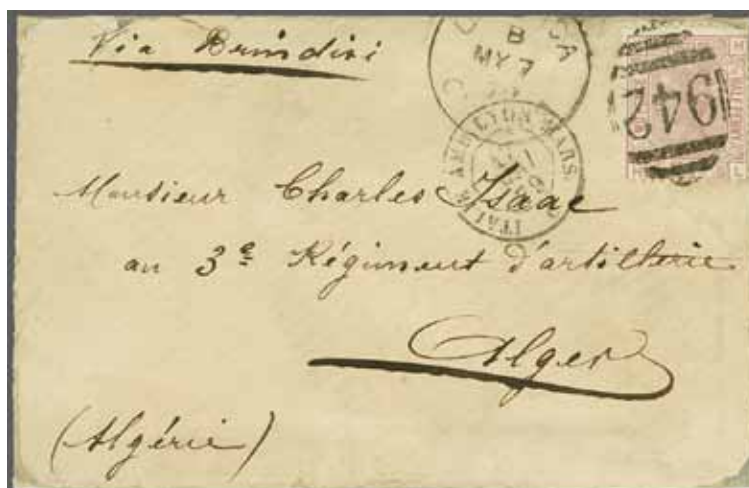 Via Brindisi
B
MY 7
942
LYON MARS
ITALIE
Monsieur Charles Isaac
au 3e Régiment d'artillerie
Alger
(Algérie)